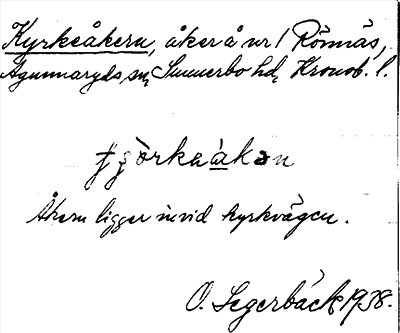 Kyrkeåkern, åker å nr 1 Rönnäs,
Agunnaryds sn, Sunnerbo hd, Kronob. l.
Åkern ligger invid kyrkvägen.
O. Segerbäck 1938.